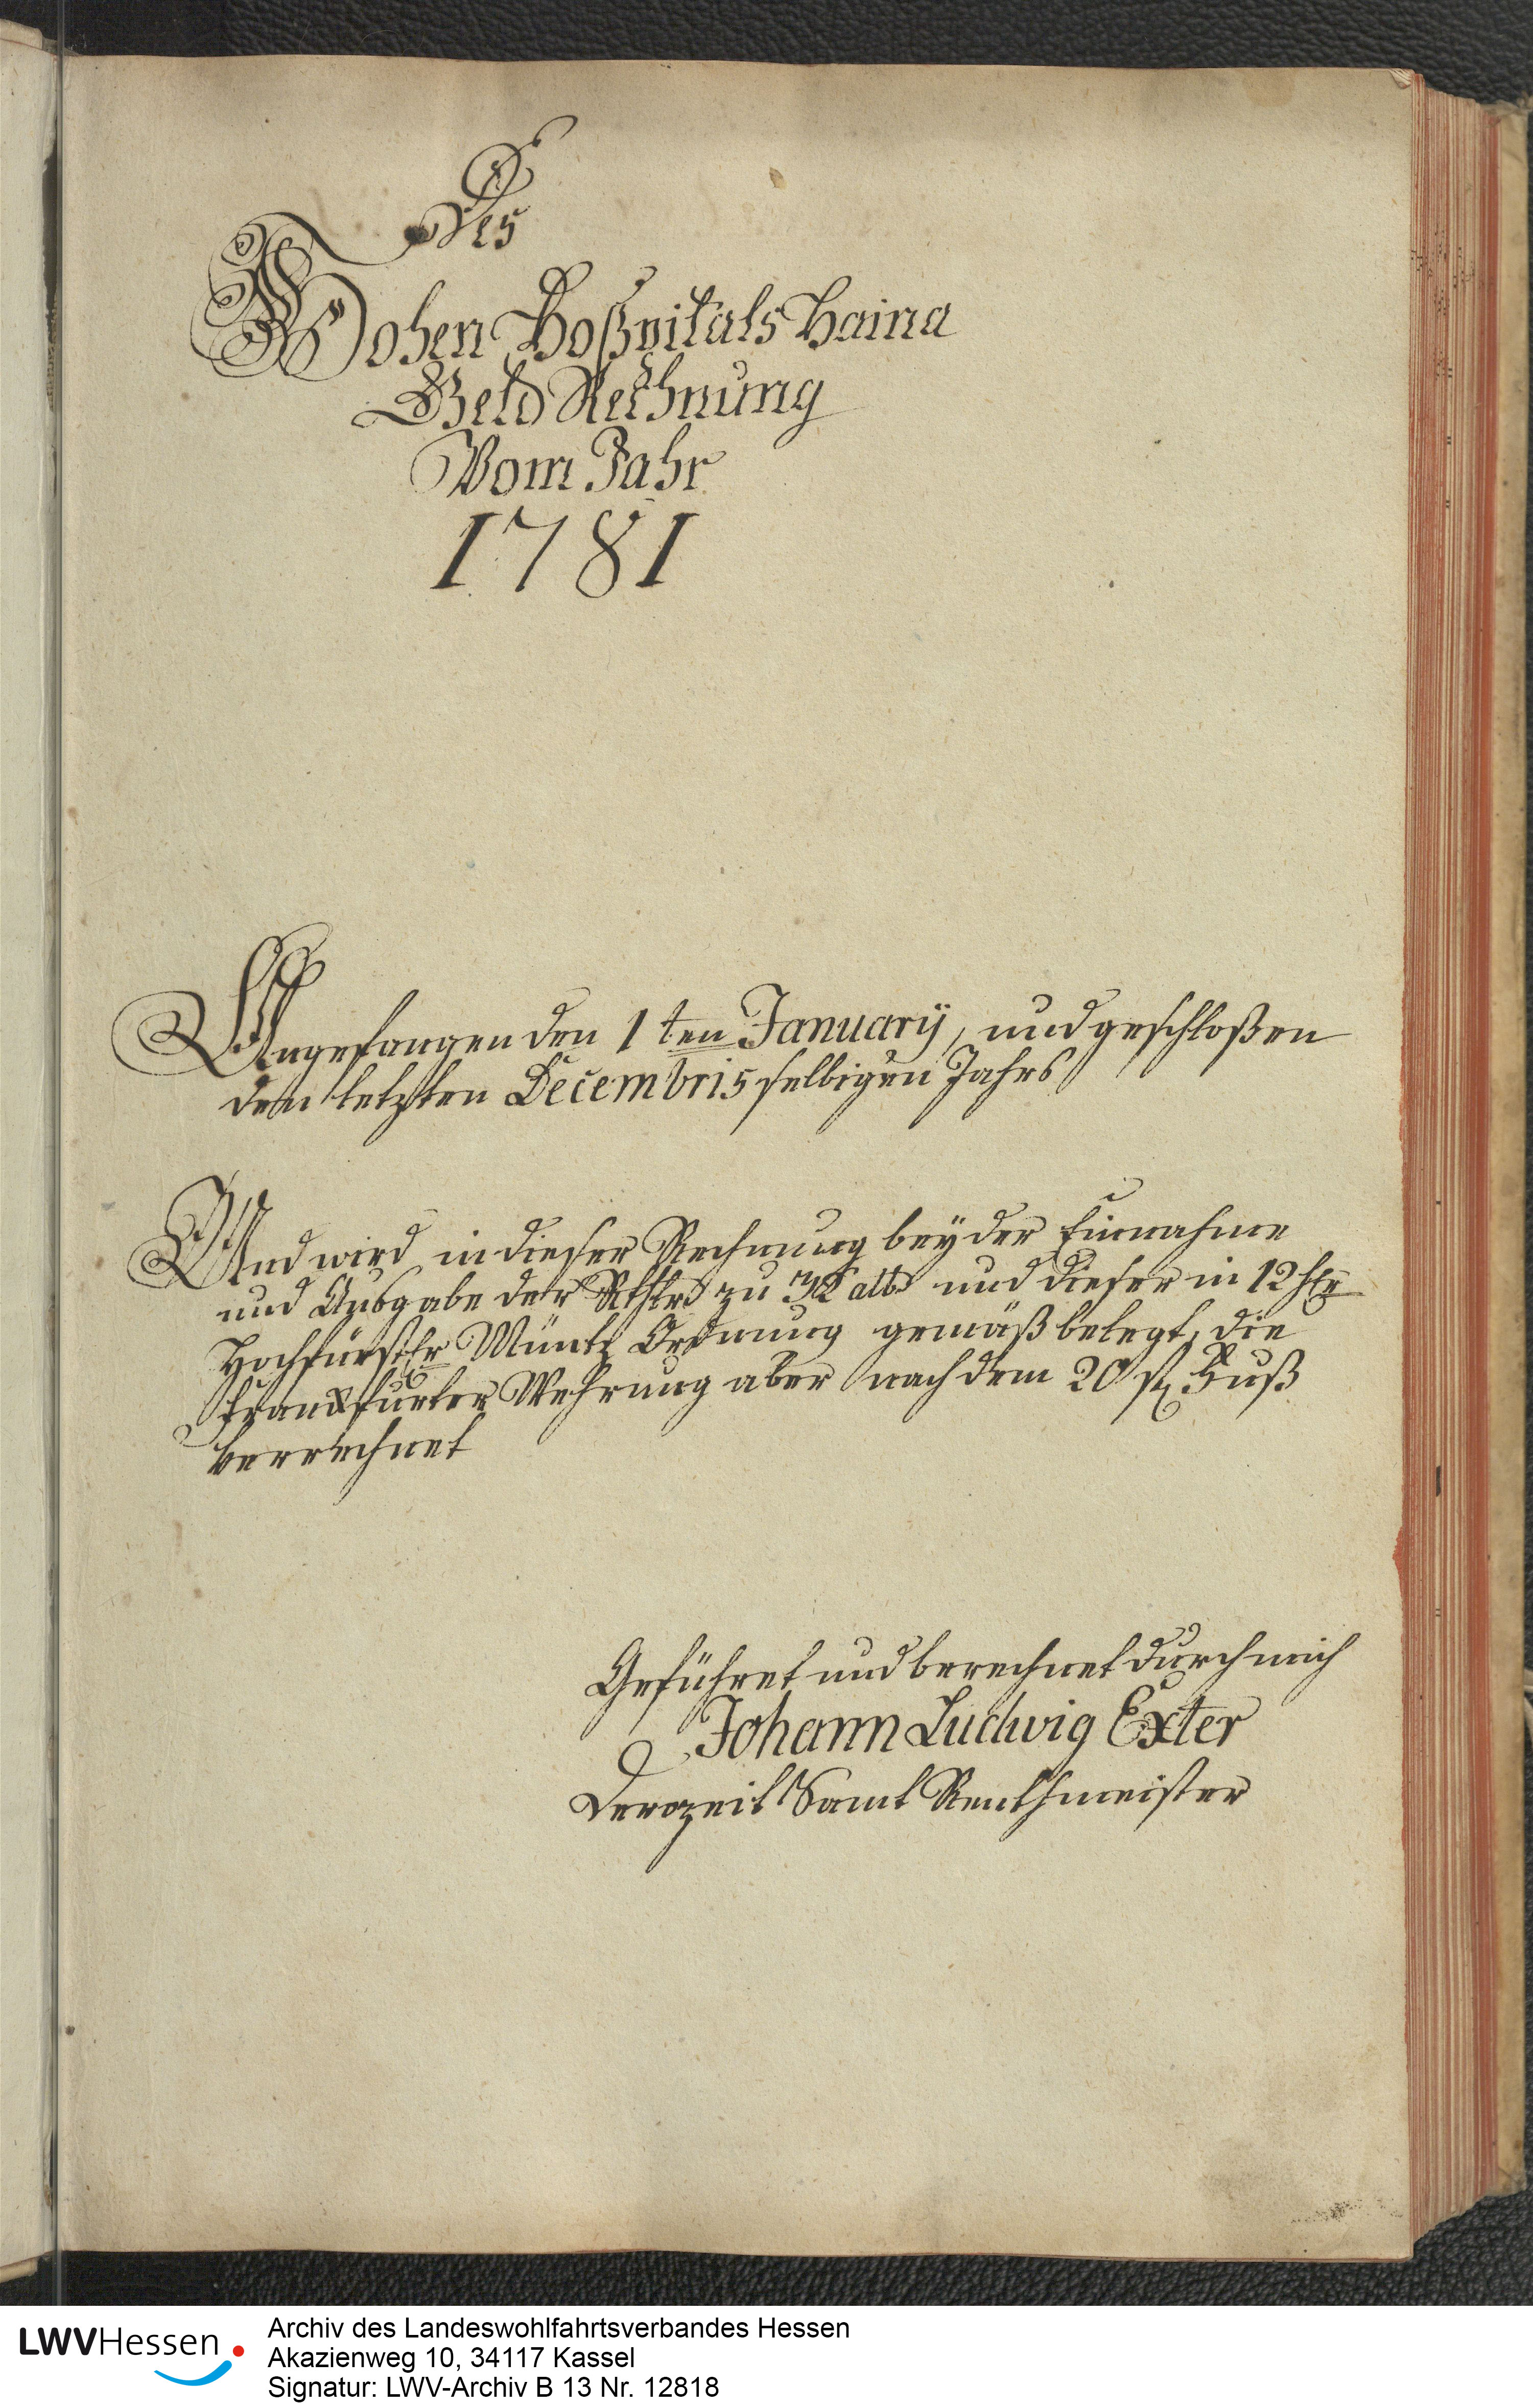 Des
Hohen Hoßpitals Haina
Geld Rechnung
Vom Jahr
1781
Angefangen den 1ten January, und geschloßen
den letzten Decembris selbigen Jahrs
Und wird in dieser Rechnung bey der Einnahme
und Ausgabe der Rthlr zu 32 alb und dieser in 12 hlr
Hochfürstlr Müntz Ordnung gemäß belegt, die
Franckfurter Wehrung aber nach dem 20 fl Fuß
berechnet
Geführet und berechnet durch mich
Johann Ludwig Exter
Derzeit Samt Renthmeister
LWVHessen
Archiv des Landeswohlfahrtsverbandes Hessen
Akazienweg 10, 34117 Kassel
Signatur: LWV-Archiv B 13 Nr. 12818